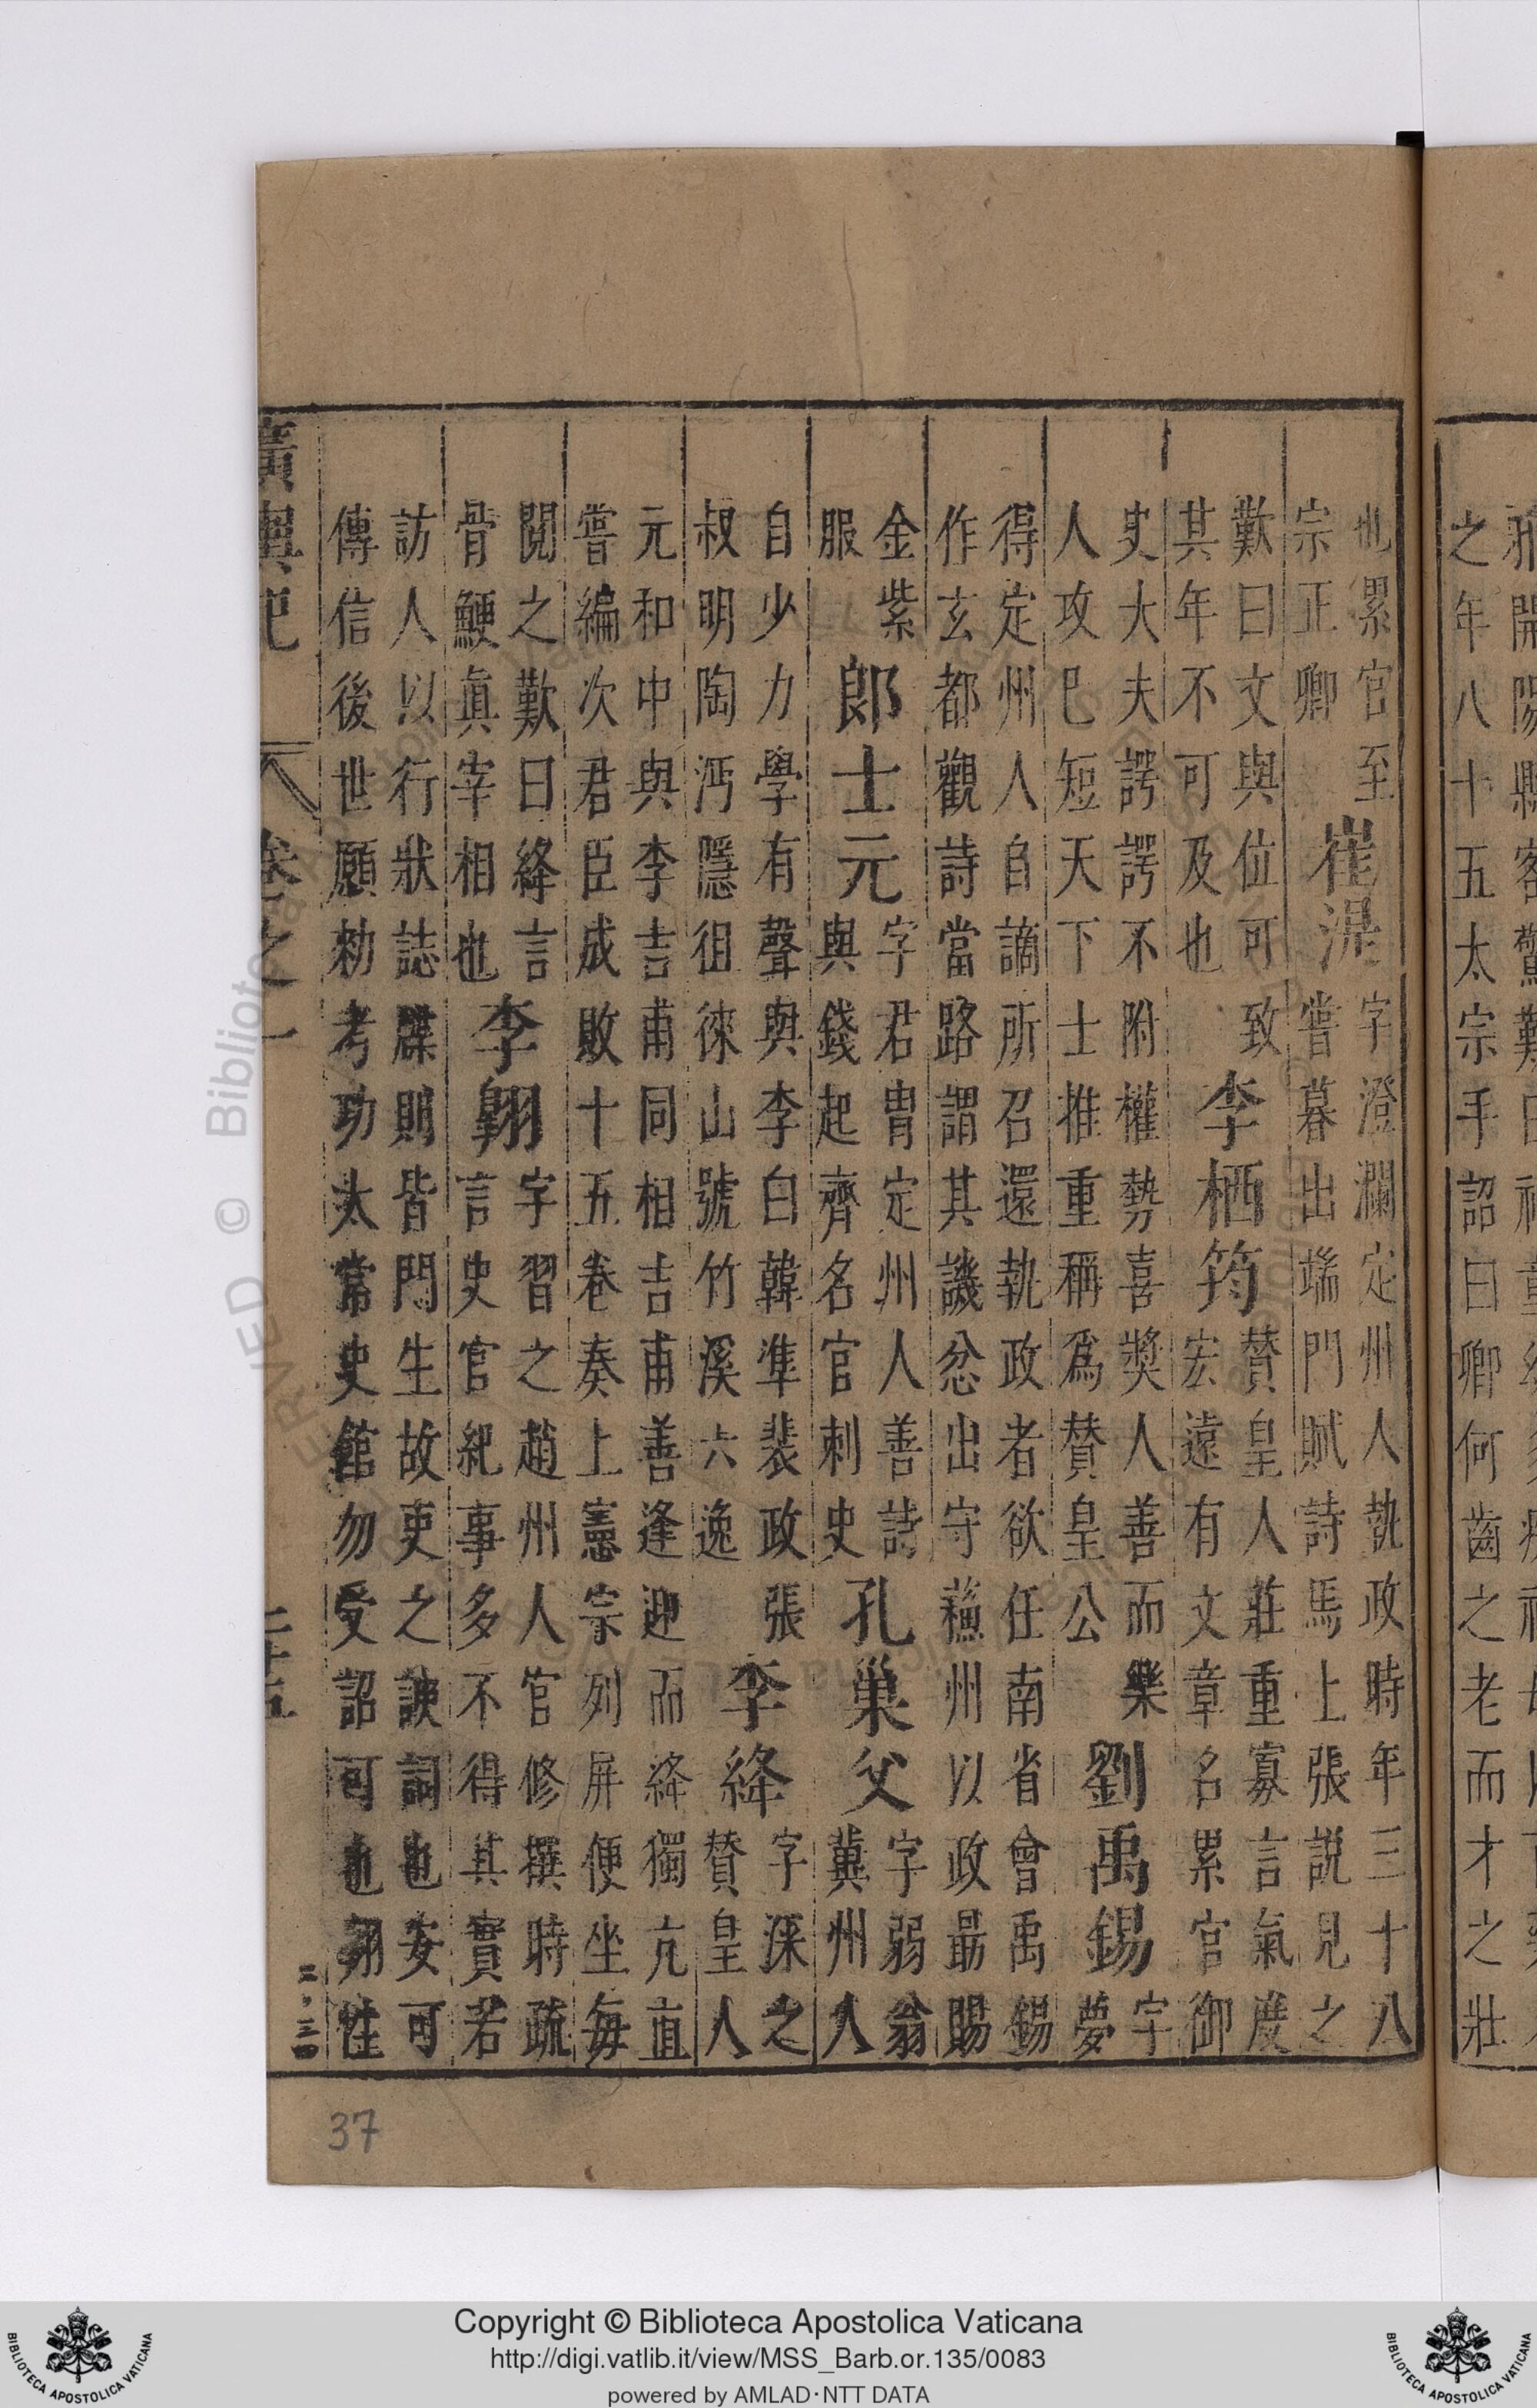 之年八十五太宗手詔曰卿何齒之老而才之壯
也累官至
宗正卿
崔湜
字澄瀾定州人執政時年三十八
嘗暮出端門賦詩馬上張說見之
歎曰文與位可致
其年不可及也
李栖筠
贊皇人莊重寡言氣度
宏遠有文章名累官御
史大夫諤諤不附權勢喜獎人善而樂
人攻已短天下士推重稱爲贊皇公
劉禹錫
字
夢
得定州人自謫所召還執政者欲任南省會禹錫
作玄都觀詩當路謂其譏忿出守蘓州以政最賜
金紫
服
郎士元
字君冑定州人善詩
與錢起齊名官刺史
孔巢父
字弱翁
冀州人
自少力學有聲與李白韓準裴政張
叔明陶沔隱徂徠山號竹溪六逸
李絳
字深之
贊皇人
元和中與李吉甫同相吉甫善逢迎而絳獨亢直
嘗編次君臣成敗十五卷奏上憲宗列屏便坐每
閱之歎曰絳言
骨鯁真宰相也
李翱
字習之趙州人官修撰時疏
言史官紀事多不得其實若
訪人以行狀誌牒則皆門生故吏之諛詞也安可
傳信後世願勑考功太常史館勿受詔可也翱性
廣輿記 卷之一 二十五
37
Copyright © Biblioteca Apostolica Vaticana
http://digi.vatlib.it/view/MSS_Barb.or.135/0083
powered by AMLAD·NTT DATA
BIBLIOTECA APOSTOLICA VATICANA
BIBLIOTECA APOSTOLICA VATICANA